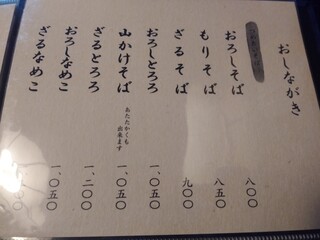 おしながき
おろしそば 八〇〇
もりそば 八五〇
ざるそば 九〇〇
おろしとろろ 一、〇五〇
山かけそば 一、〇五〇
あたたかくも
出来ます
ざるとろろ 一、二〇〇
おろしなめこ 一、〇五〇
ざるなめこ